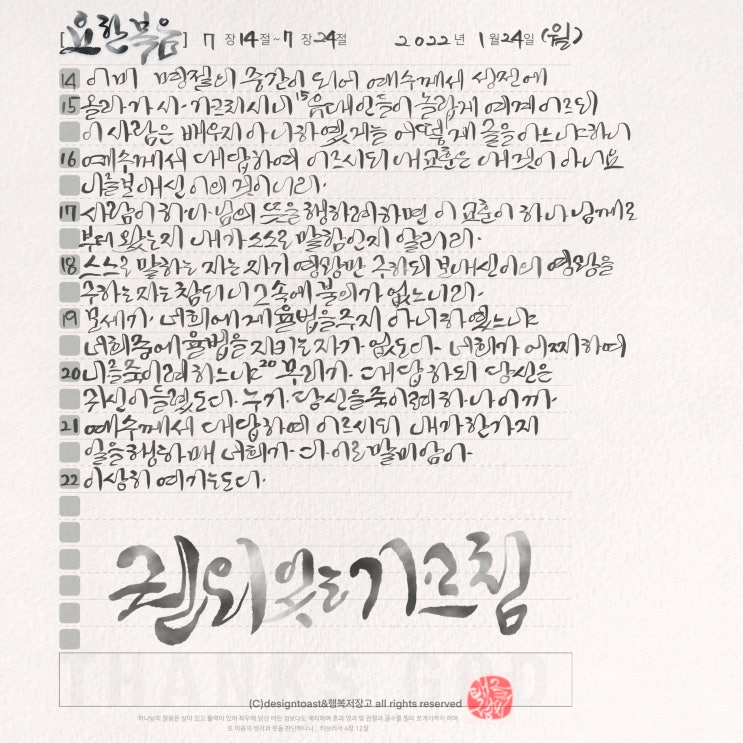 [요한복음] 7장 14절~7장 24절 2022년 1월 24일 (월)
14 이미 명절의 중간이 되어 예수께서 성전에
15 올라가사 가르치시니 15 유대인들이 놀랍게 여겨 이르되
이 사람은 배우지 아니하였거늘 어떻게 글을 아느냐 하니
16 예수께서 대답하여 이르시되 내 교훈은 내 것이 아니요
나를 보내신 이의 것이니라.
17 사람이 하나님의 뜻을 행하려 하면 이 교훈이 하나님께로
부터 왔는지 내가 스스로 말함인지 알리라.
18 스스로 말하는 자는 자기 영광만 구하되 보내신 이의 영광을
구하는 자는 참되니 그 속에 불의가 없느니라.
19 모세가 너희에게 율법을 주지 아니하였느냐
너희 중에 율법을 지키는 자가 없도다. 너희가 어찌하여
20 나를 죽이려 하느냐 20 무리가 대답하되 당신은
귀신이 들렸도다. 누가 당신을 죽이려 하나이까.
21 예수께서 대답하여 이르시되 내가 한 가지
일을 행하매 너희가 다 이로 말미암아
22 이상히 여기는도다.
권위 있는 가르침
THANKS GOD
(C)designtoast&행복저장고 all rights reserved
하나님의 말씀은 살아 있고 활력이 있어 좌우에 날선 어떤 검보다도 예리하여 혼과 영과 및 관절과 골수를 찔러 쪼개기까지 하며
또 마음의 생각과 뜻을 판단하나니_ 히브리서 4장 12절